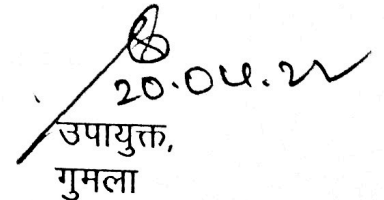 20.04.22
उपायुक्त,
गुमला